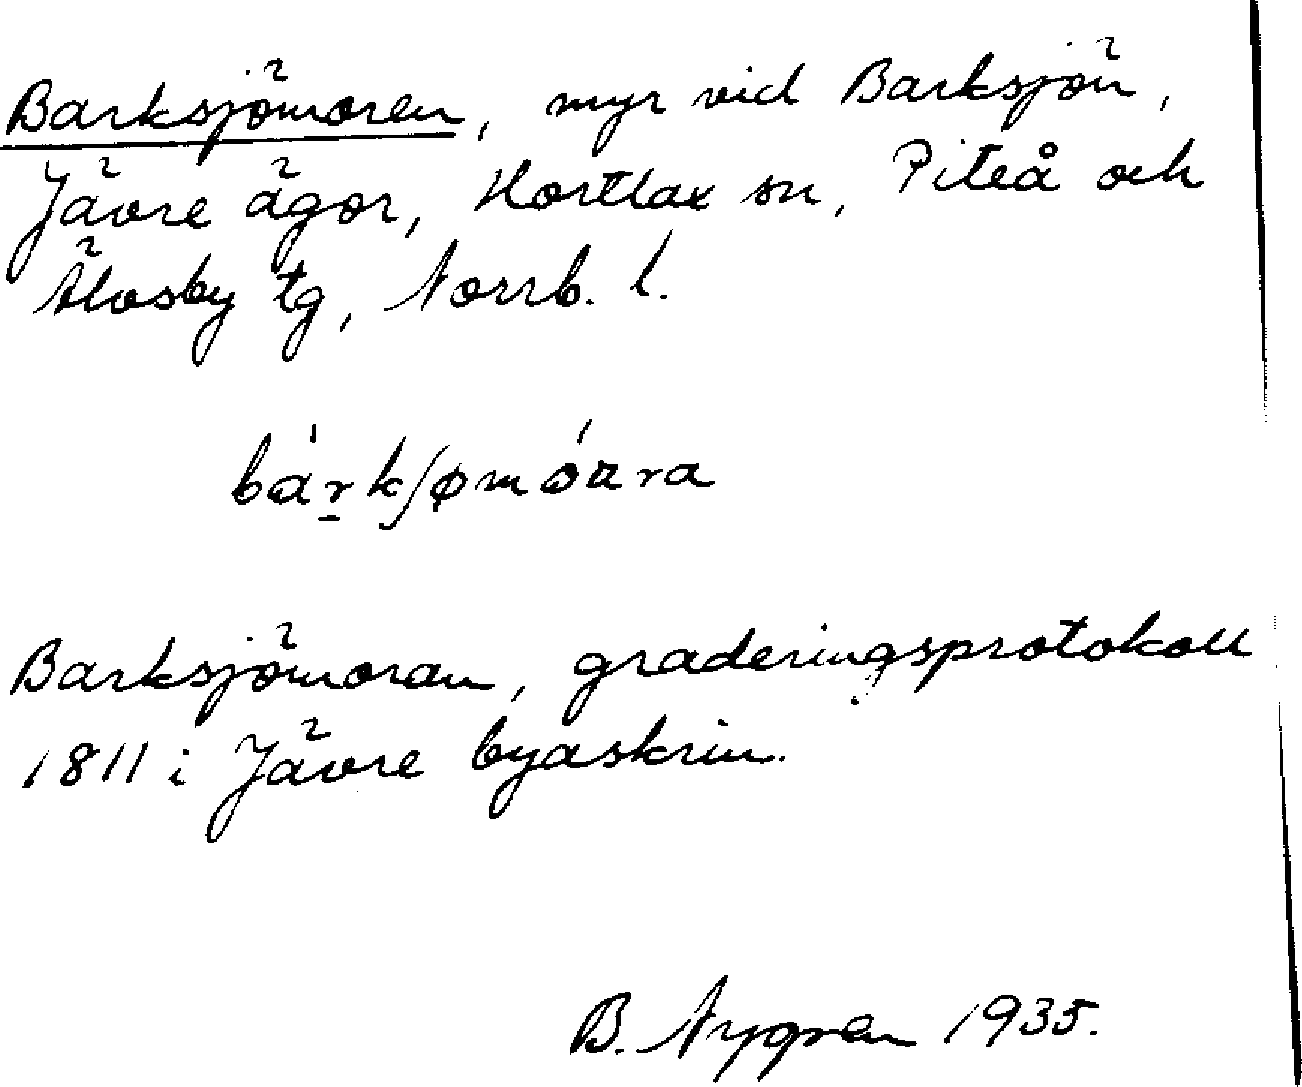 Barksjömoren, myr vid Barksjön,
Jävre ägor, Hortlax sn, Piteå och
Älvsby tg, Norrb. l.
bárkʃømóɑra
Barksjömoran, graderingsprotokoll
1811 i Jävre byaskrin.
B. Nygren 1935.